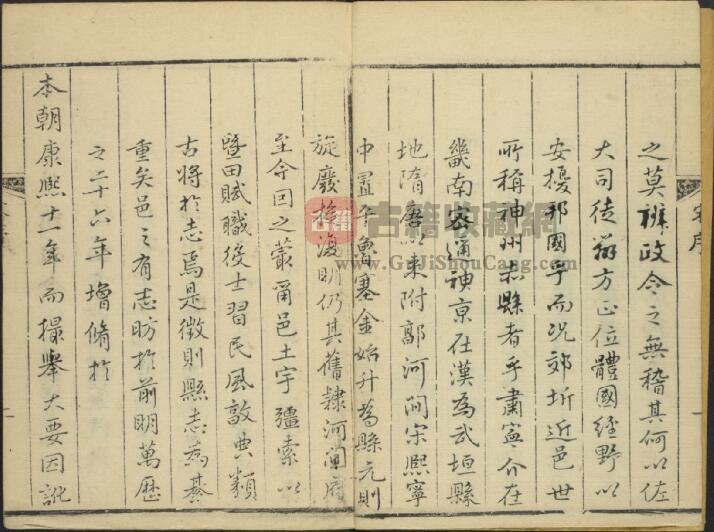 之莫裨政令之無稽其何以佐
大司徒辨方正位體國經野以
安擾邦國乎而况郊圻近邑世
所稱神州赤縣者乎肅寧介在
畿南密邇神京在漢為武垣縣
地隋唐以來附鄚河間宋熙寧
中置平魯塞金始升為縣元則
旋廢旋復明仍其舊隸河間府
至今因之蕞爾邑土宇疆索以
暨田賦職役士習民風敦典類
古將於志焉是徵則縣志為綦
重矣邑之有志昉於前明萬歷
之二十六年增脩於
本朝康熙十一年而撮舉大要因訛
序
一
一
古籍
古籍收藏網
www.GuJiShouCang.com